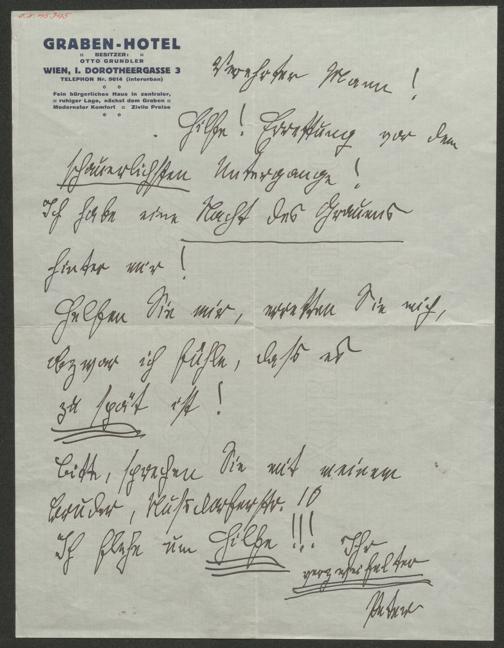 GRABEN-HOTEL
BESITZER:
OTTO GRUNDLER
WIEN, I. DOROTHEERGASSE 3
TELEPHON Nr. 9614 (interurban)
Fein bürgerliches Haus in zentraler,
ruhiger Lage, nächst dem Graben
Modernster Komfort Zivile Preise
Verehrter Mann!
Hilfe! Errettung vor dem
schauerlichsten Untergange!
Ich habe eine Nacht des Grauens
hinter mir!
Helfen Sie mir, erretten Sie mich,
obzwar ich fühle, dass es
zu spät ist!
Bitte, sprechen Sie mit meinem
Bruder, Nussdorferstr. 10
Ich flehe um Hilfe!!!
Ihr
verzweifelter
Peter